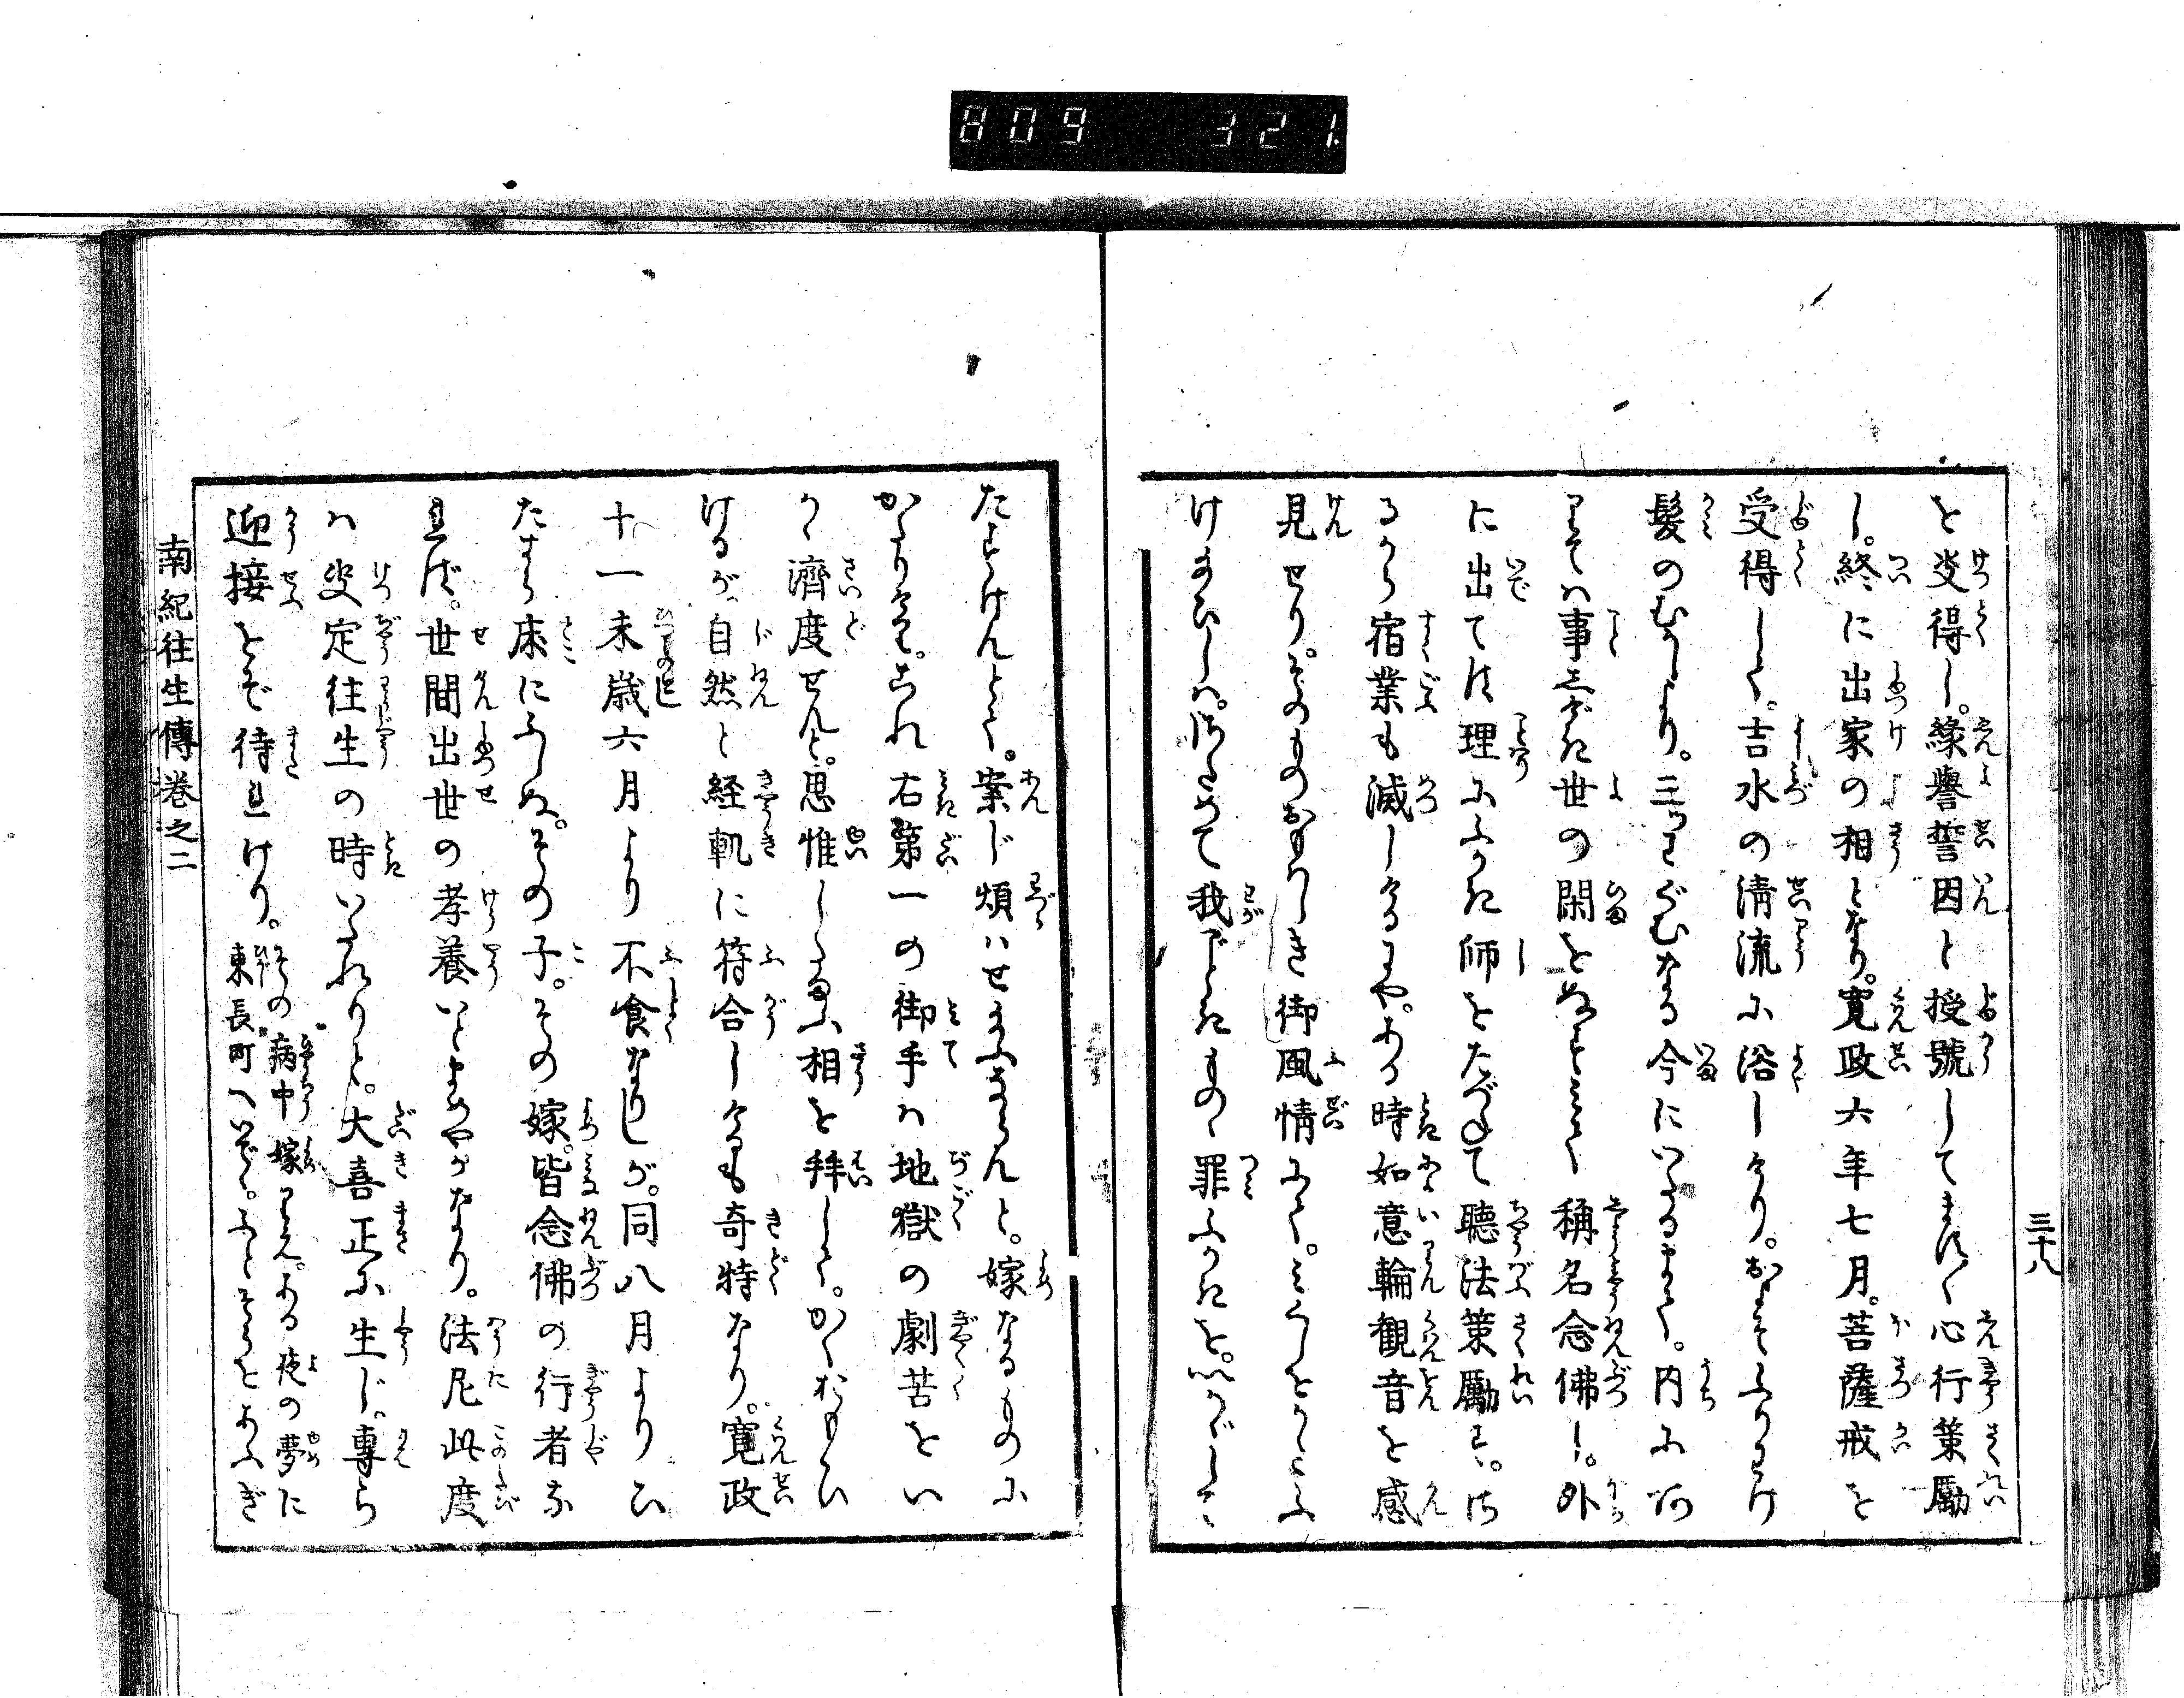 809 321
三十八
を㕝得し。縁譽誓因と授號してます〱心行策勵
し。終に出家の相となり。寛政六年七月。菩薩戒を
受得して。吉水の清流に浴しけり。おほよそふりわけ
髪のむかしより。三つわぐむなる今にいたるまで。内に
事しげき世の閑をぬすみて稱名念佛し。外
に出ては理にふかき師をたづねて聴法策勵す。さ
るから宿業も滅しけるにや。ある時如意輪観音を感
見せり。そのものおもはしき御風情にて。みぐしをかたふ
けたまひしハ。
我ごときもの〻罪ふかきを。いかゞして
たすけんとて。案じ煩ハせたまふならんと。嫁なるものに
かたりける。これ右第一の御手ハ地獄の劇苦をい
かゞ濟度せんと。思惟したまふ相を拝して。かくおもひ
けるが。自然と経軌に符合しけるも奇特なり。寛政
十一未歳六月より不食なりしが。同八月よりひ
たすら床にふしぬ。その子。その嫁。皆念佛の行者な
れば。世間出世の孝養いとまめやかなり。法尼此度
ハ㕝定往生の時いたれりと。大喜正に生じ。專ら
迎接をぞ待れけり。その病中嫁
ある夜の夢に
東長町へいでゝ。ふとそらをあふぎ
南紀往生傳巻之二